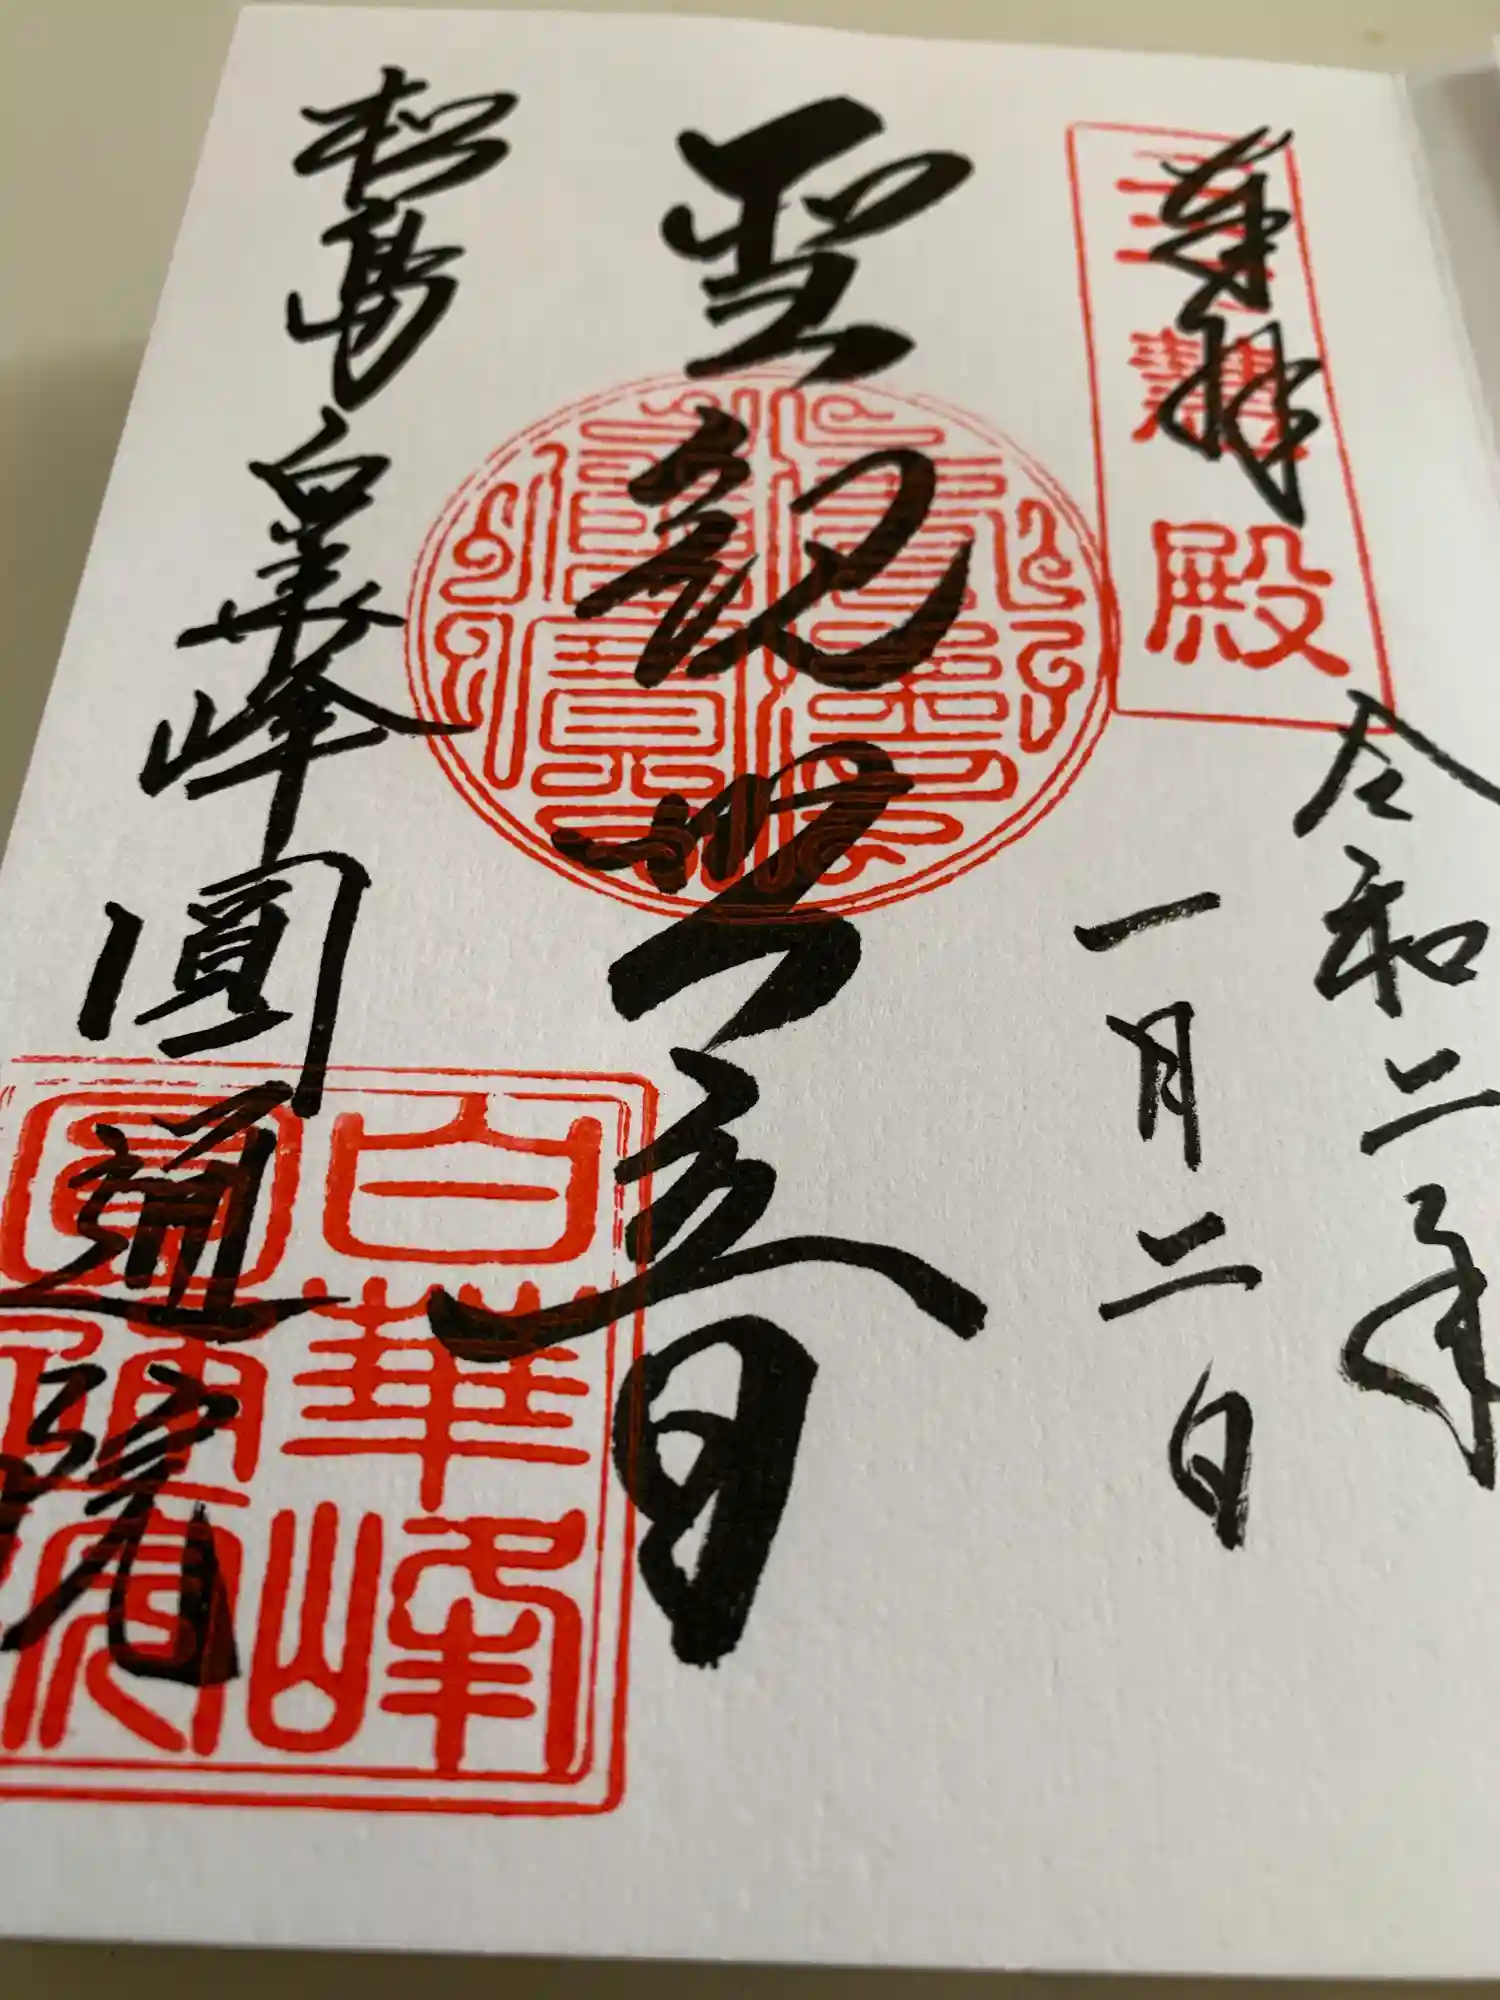 奉拝
三慧殿
令和二年
一月二日
聖観世音
松島白華峰圓通院
白華峰
圓通院